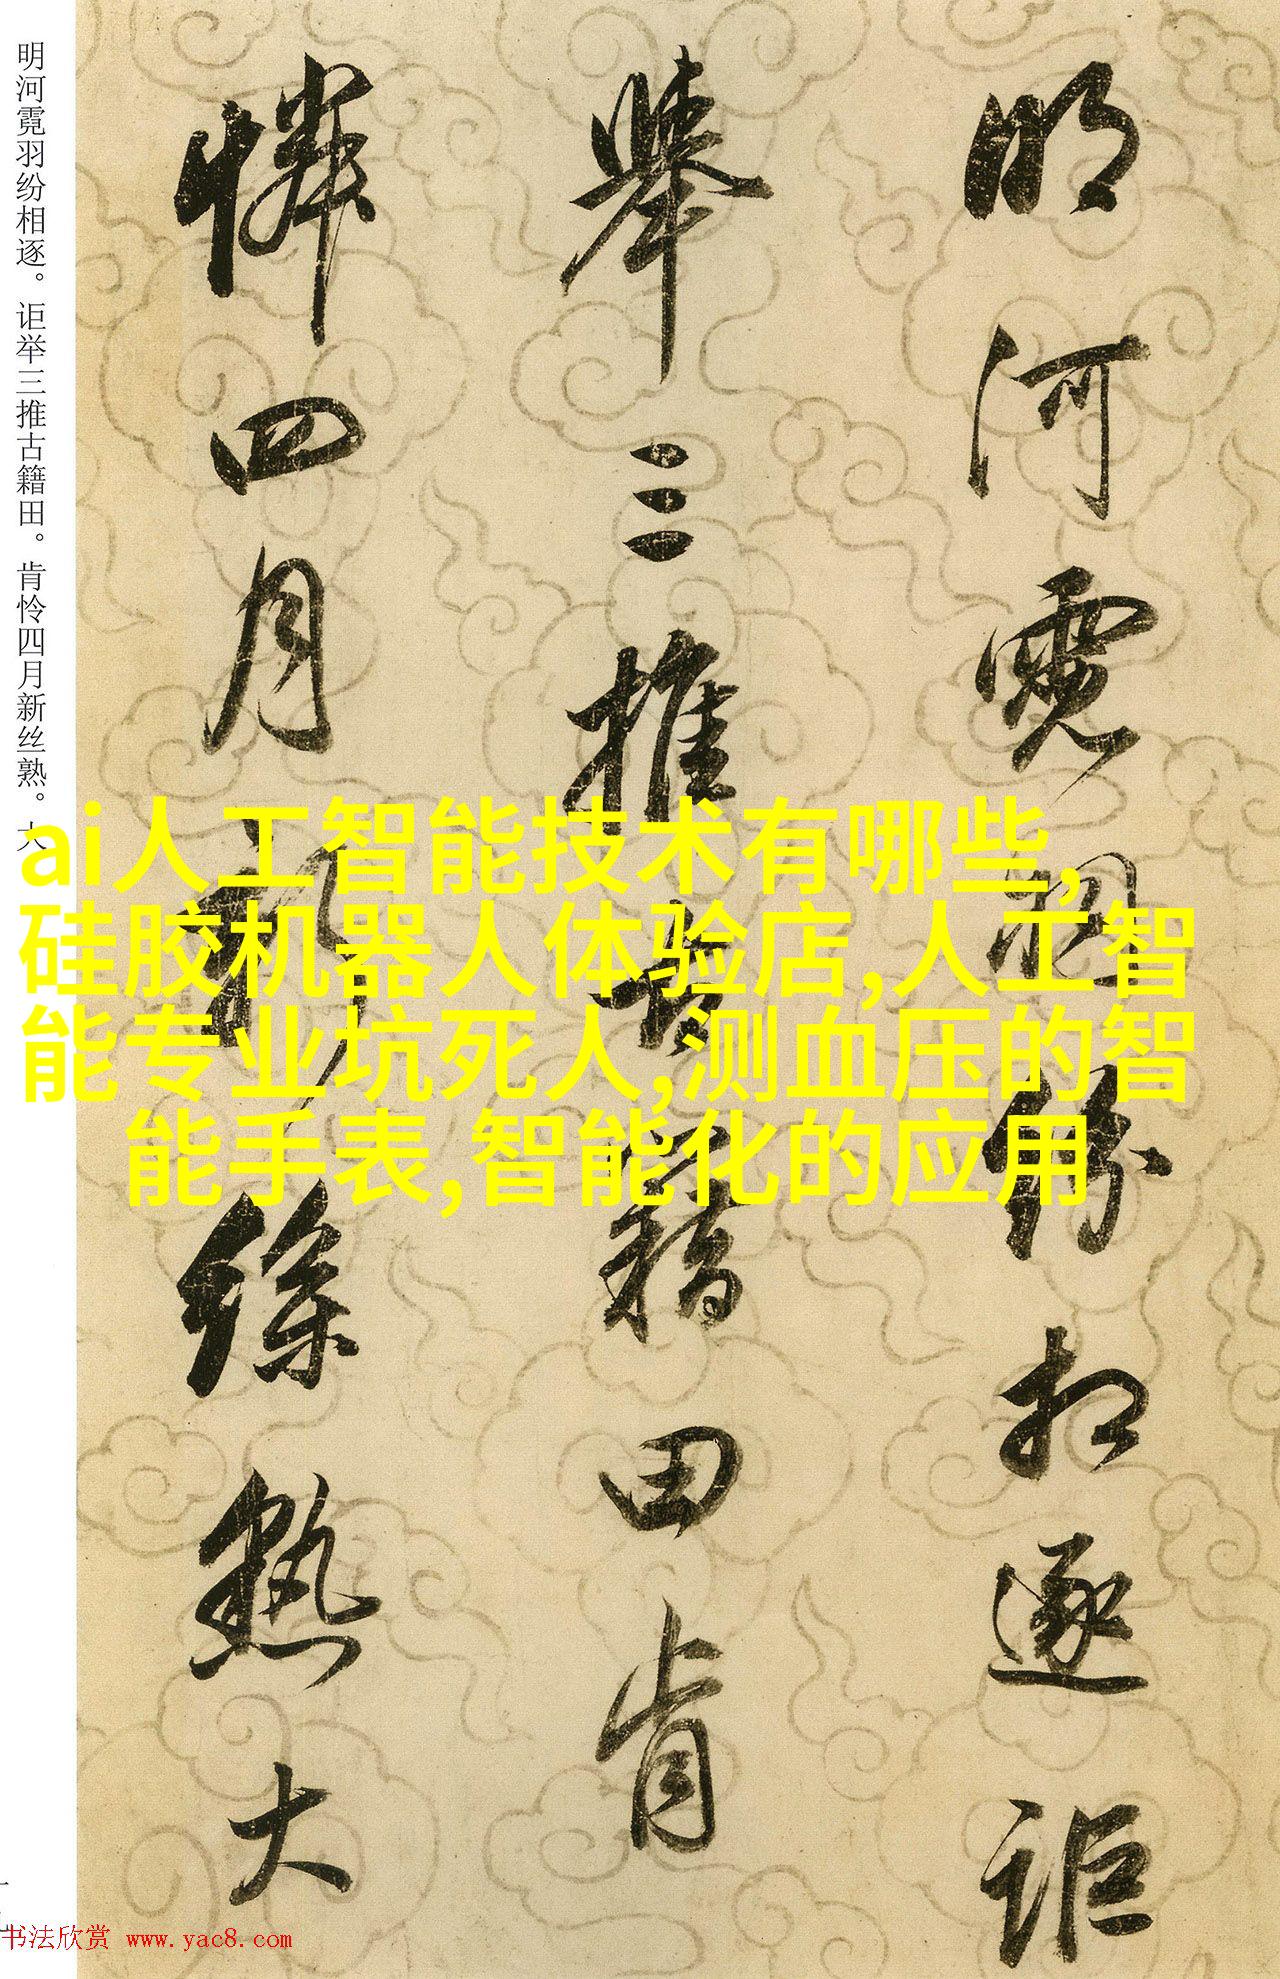 明河霓羽纷相逐。讵举三推古籍田。肯怜四月新丝熟。大
明河霓羽纷相逐詎
舉三推古籍田肯
憐四月新絲熟大
ai人工智能技术有哪些,
硅胶机器人体验店,人工智
能专业坑死人,测血压的智
能手表,智能化的应用
书法欣赏 www.yac8.com